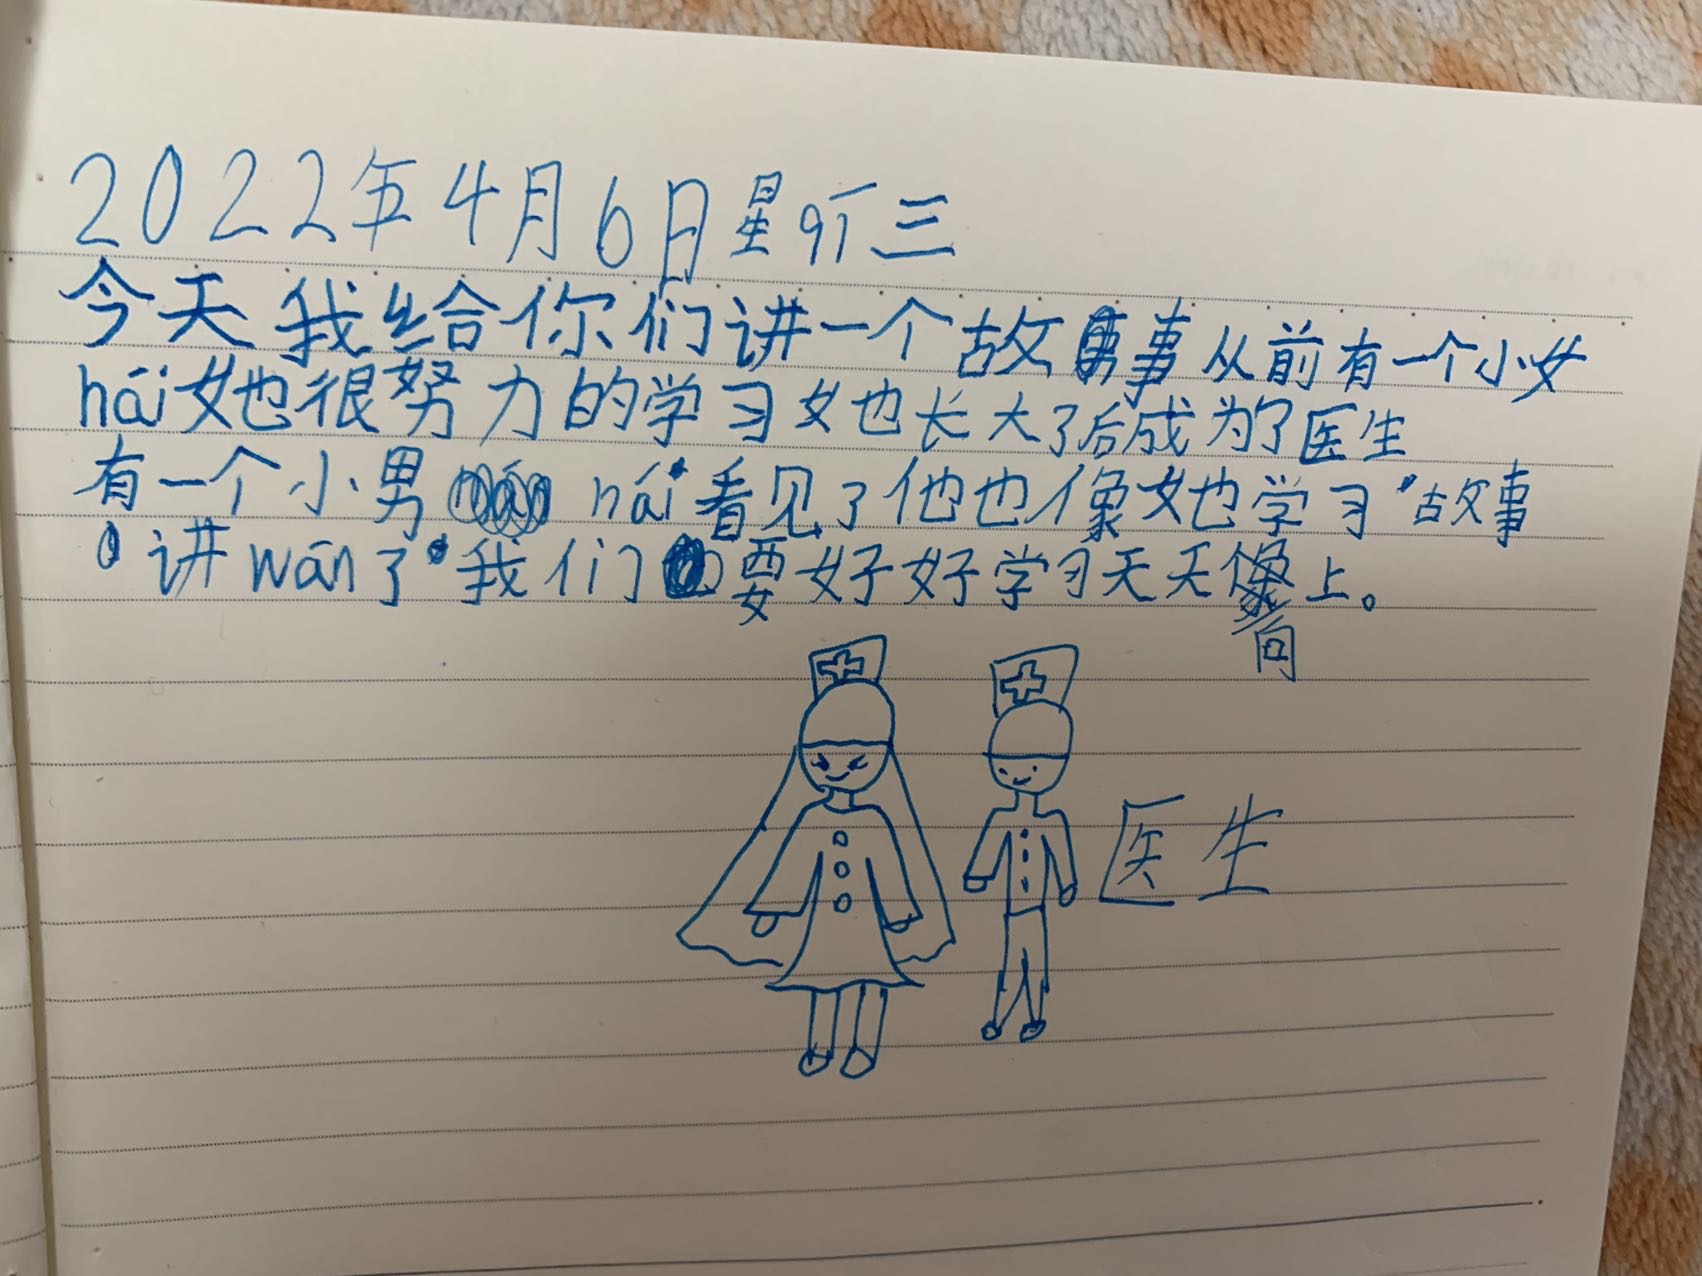 2022年4月6日星斤三
今天我给你们讲一个故事从前有一个小女
hái她很努力的学习她长大了后成为了医生
有一个小男hái看见了他也像她学习故事
讲wán了我们要好好学习天天向上。
医生